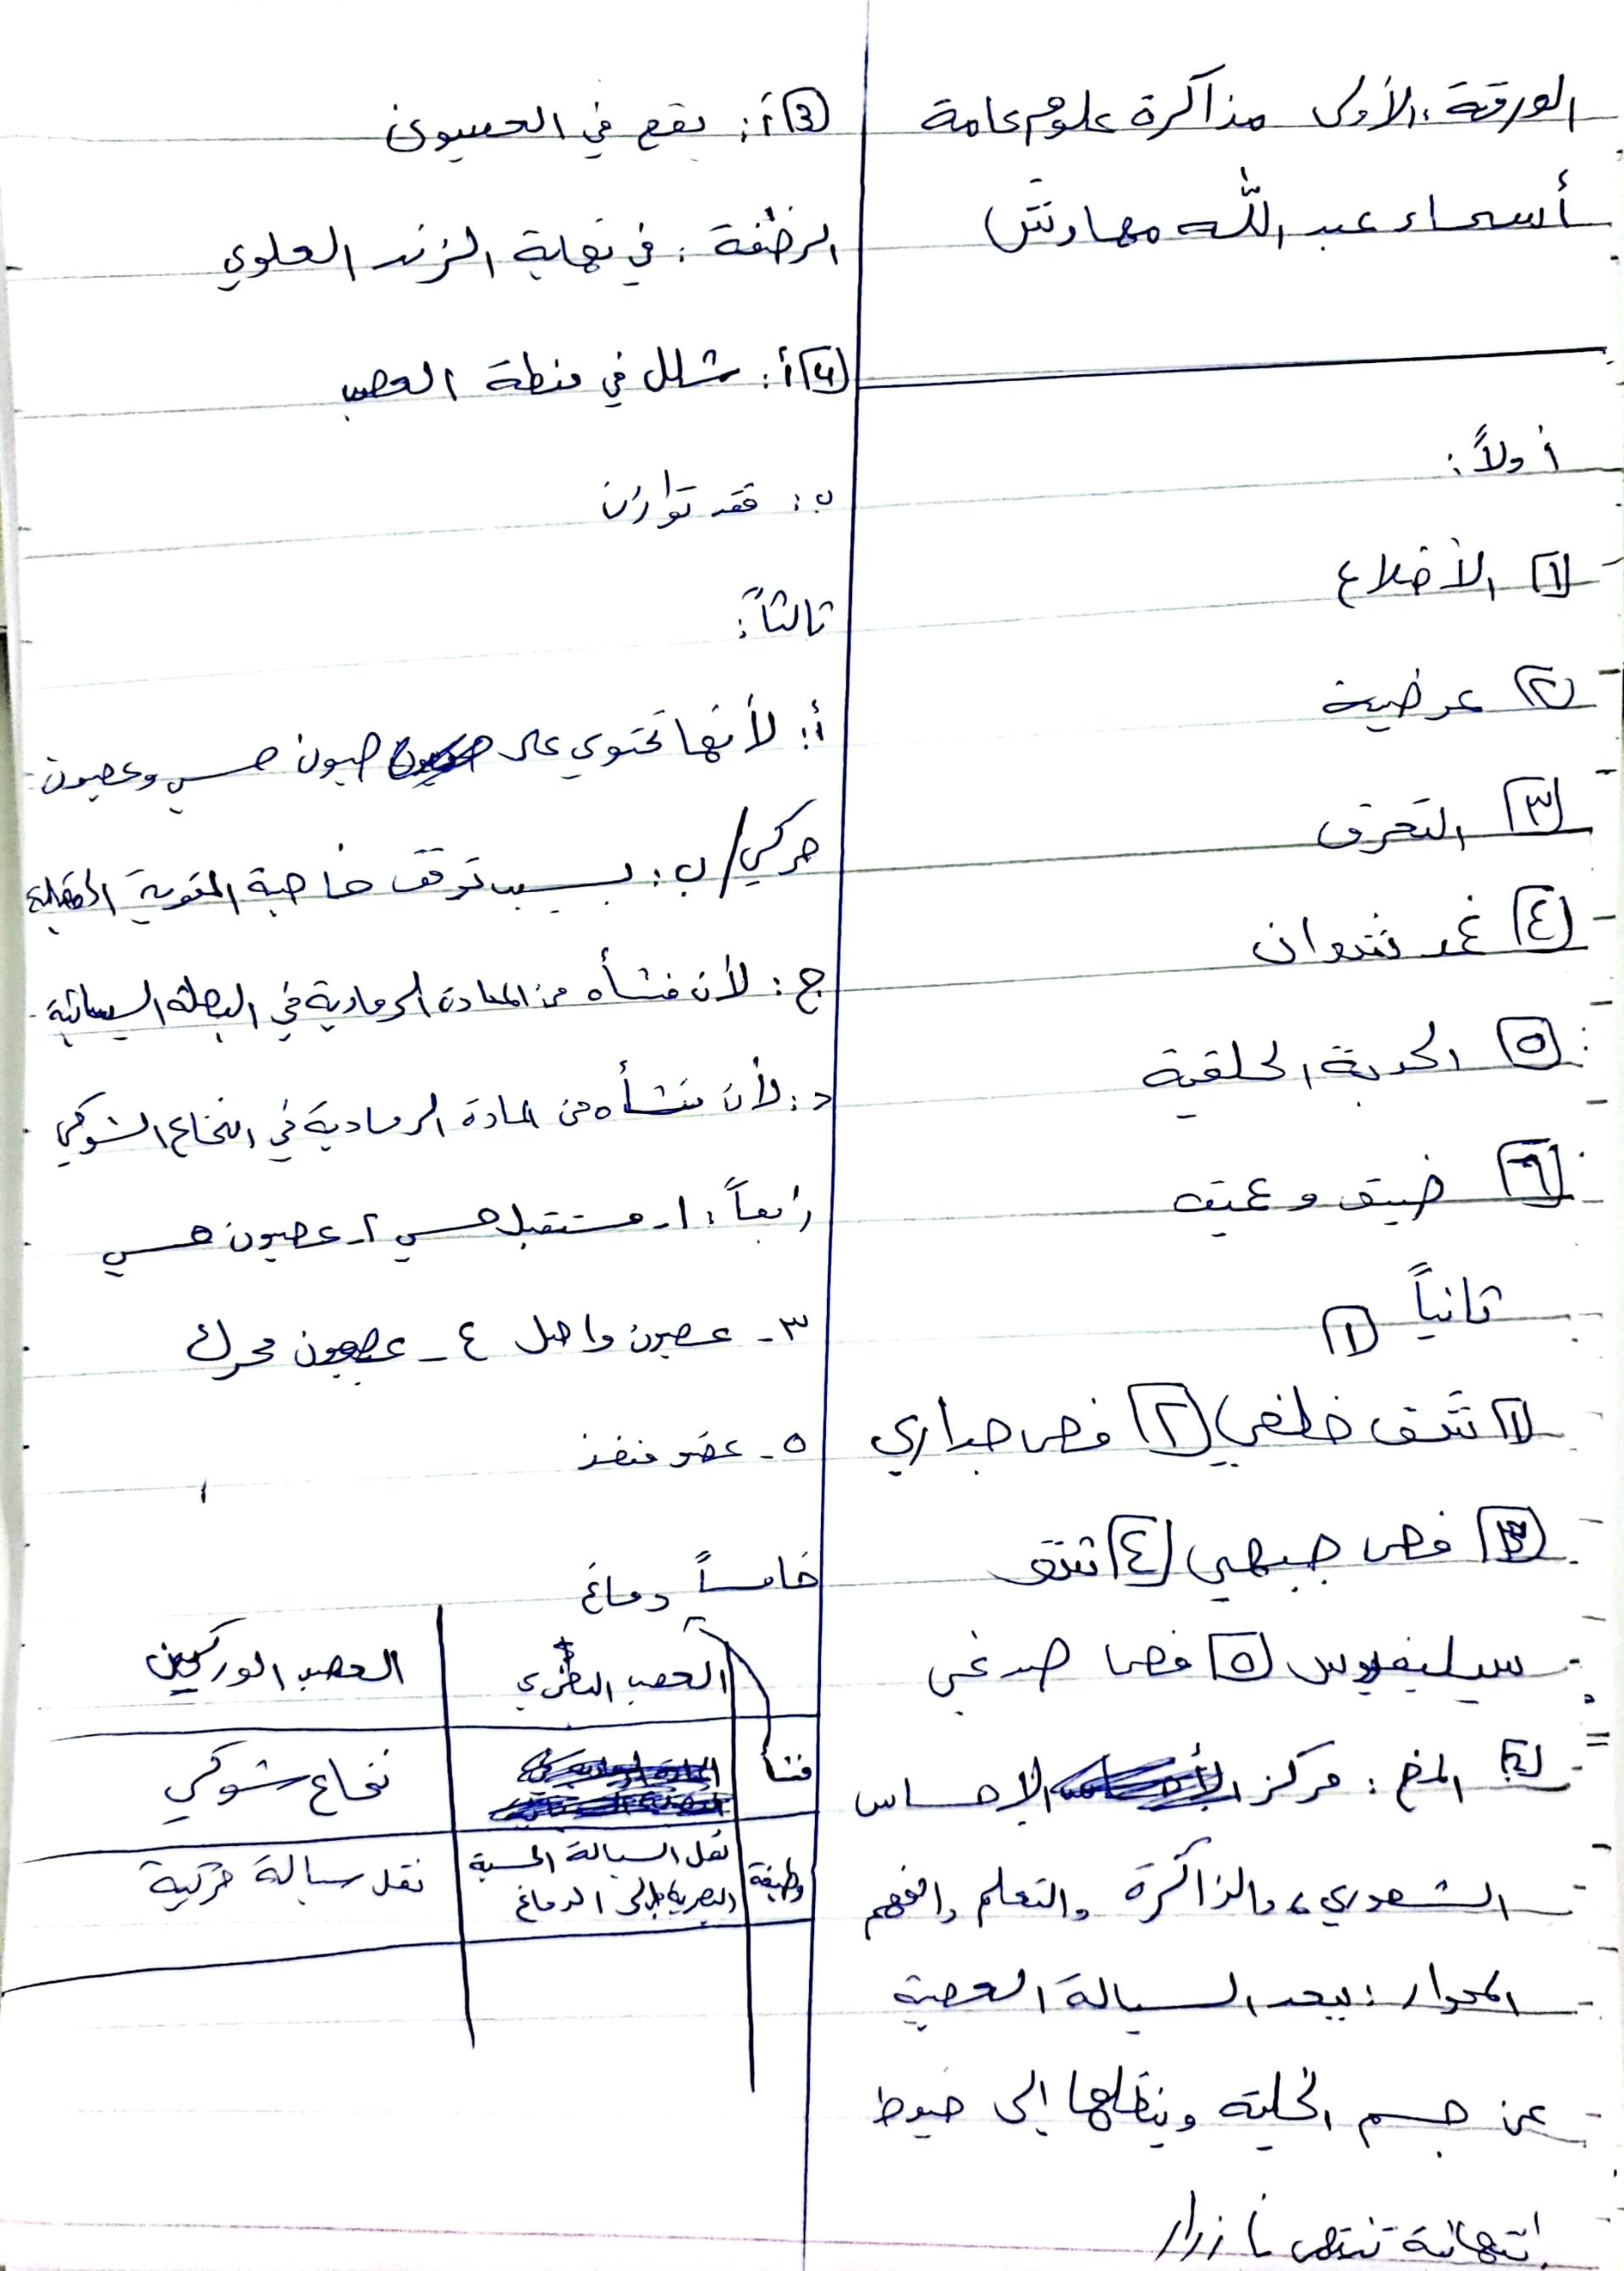 الورقة الأولى مذاكرة علوم عامة
أسماء عبد الله مهاوش
أولاً:
١ الأضلاع
٢ عرضية
٣ التعرق
٤ غمد شوان
٥ الحدبة الحلقية
٦ ضيق وعميق
ثانياً ١
١ شق خلفي ٢ فص جداري
٣ فص جبهي ٤ شق
سيليفيوس ٥ فص صدغي
٢ المخ: مركز الإحساس
الشعوري، والذاكرة والتعلم والفهم
المحوار: يبعد السيالة العصبية
عن جسم الخلية وينقلها إلى خيوط
انتهائية تنتهي بأزرار
3 أ: يقع في العصبون
الرضفة: في نهاية الزند العلوي
4 أ: شلل في منطة العصب
ب: فقد توازن
ثالثاً:
أ: لأنها تحتوي على صبون حسي وعصبون
حركي / ب: بسبب توقف خاصية المقوية العضلية
ج: لأن منشأه من المادة الرمادية في البصلة السيسائية
د: لأن منشأه من المادة الرمادية في النخاع الشوكي
رابعاً: ١- مستقبل حسي ٢- عصبون حسي
٣- عصبون واصل ٤- عصبون محرك
٥- عضو منفذ
خامساً دماغ
العصب البصري العصب الوركي
منشأ نخاع شوكي
وظيفة نقل السيالة الحسية نقل سيالة حركية
البصرية إلى الدماغ